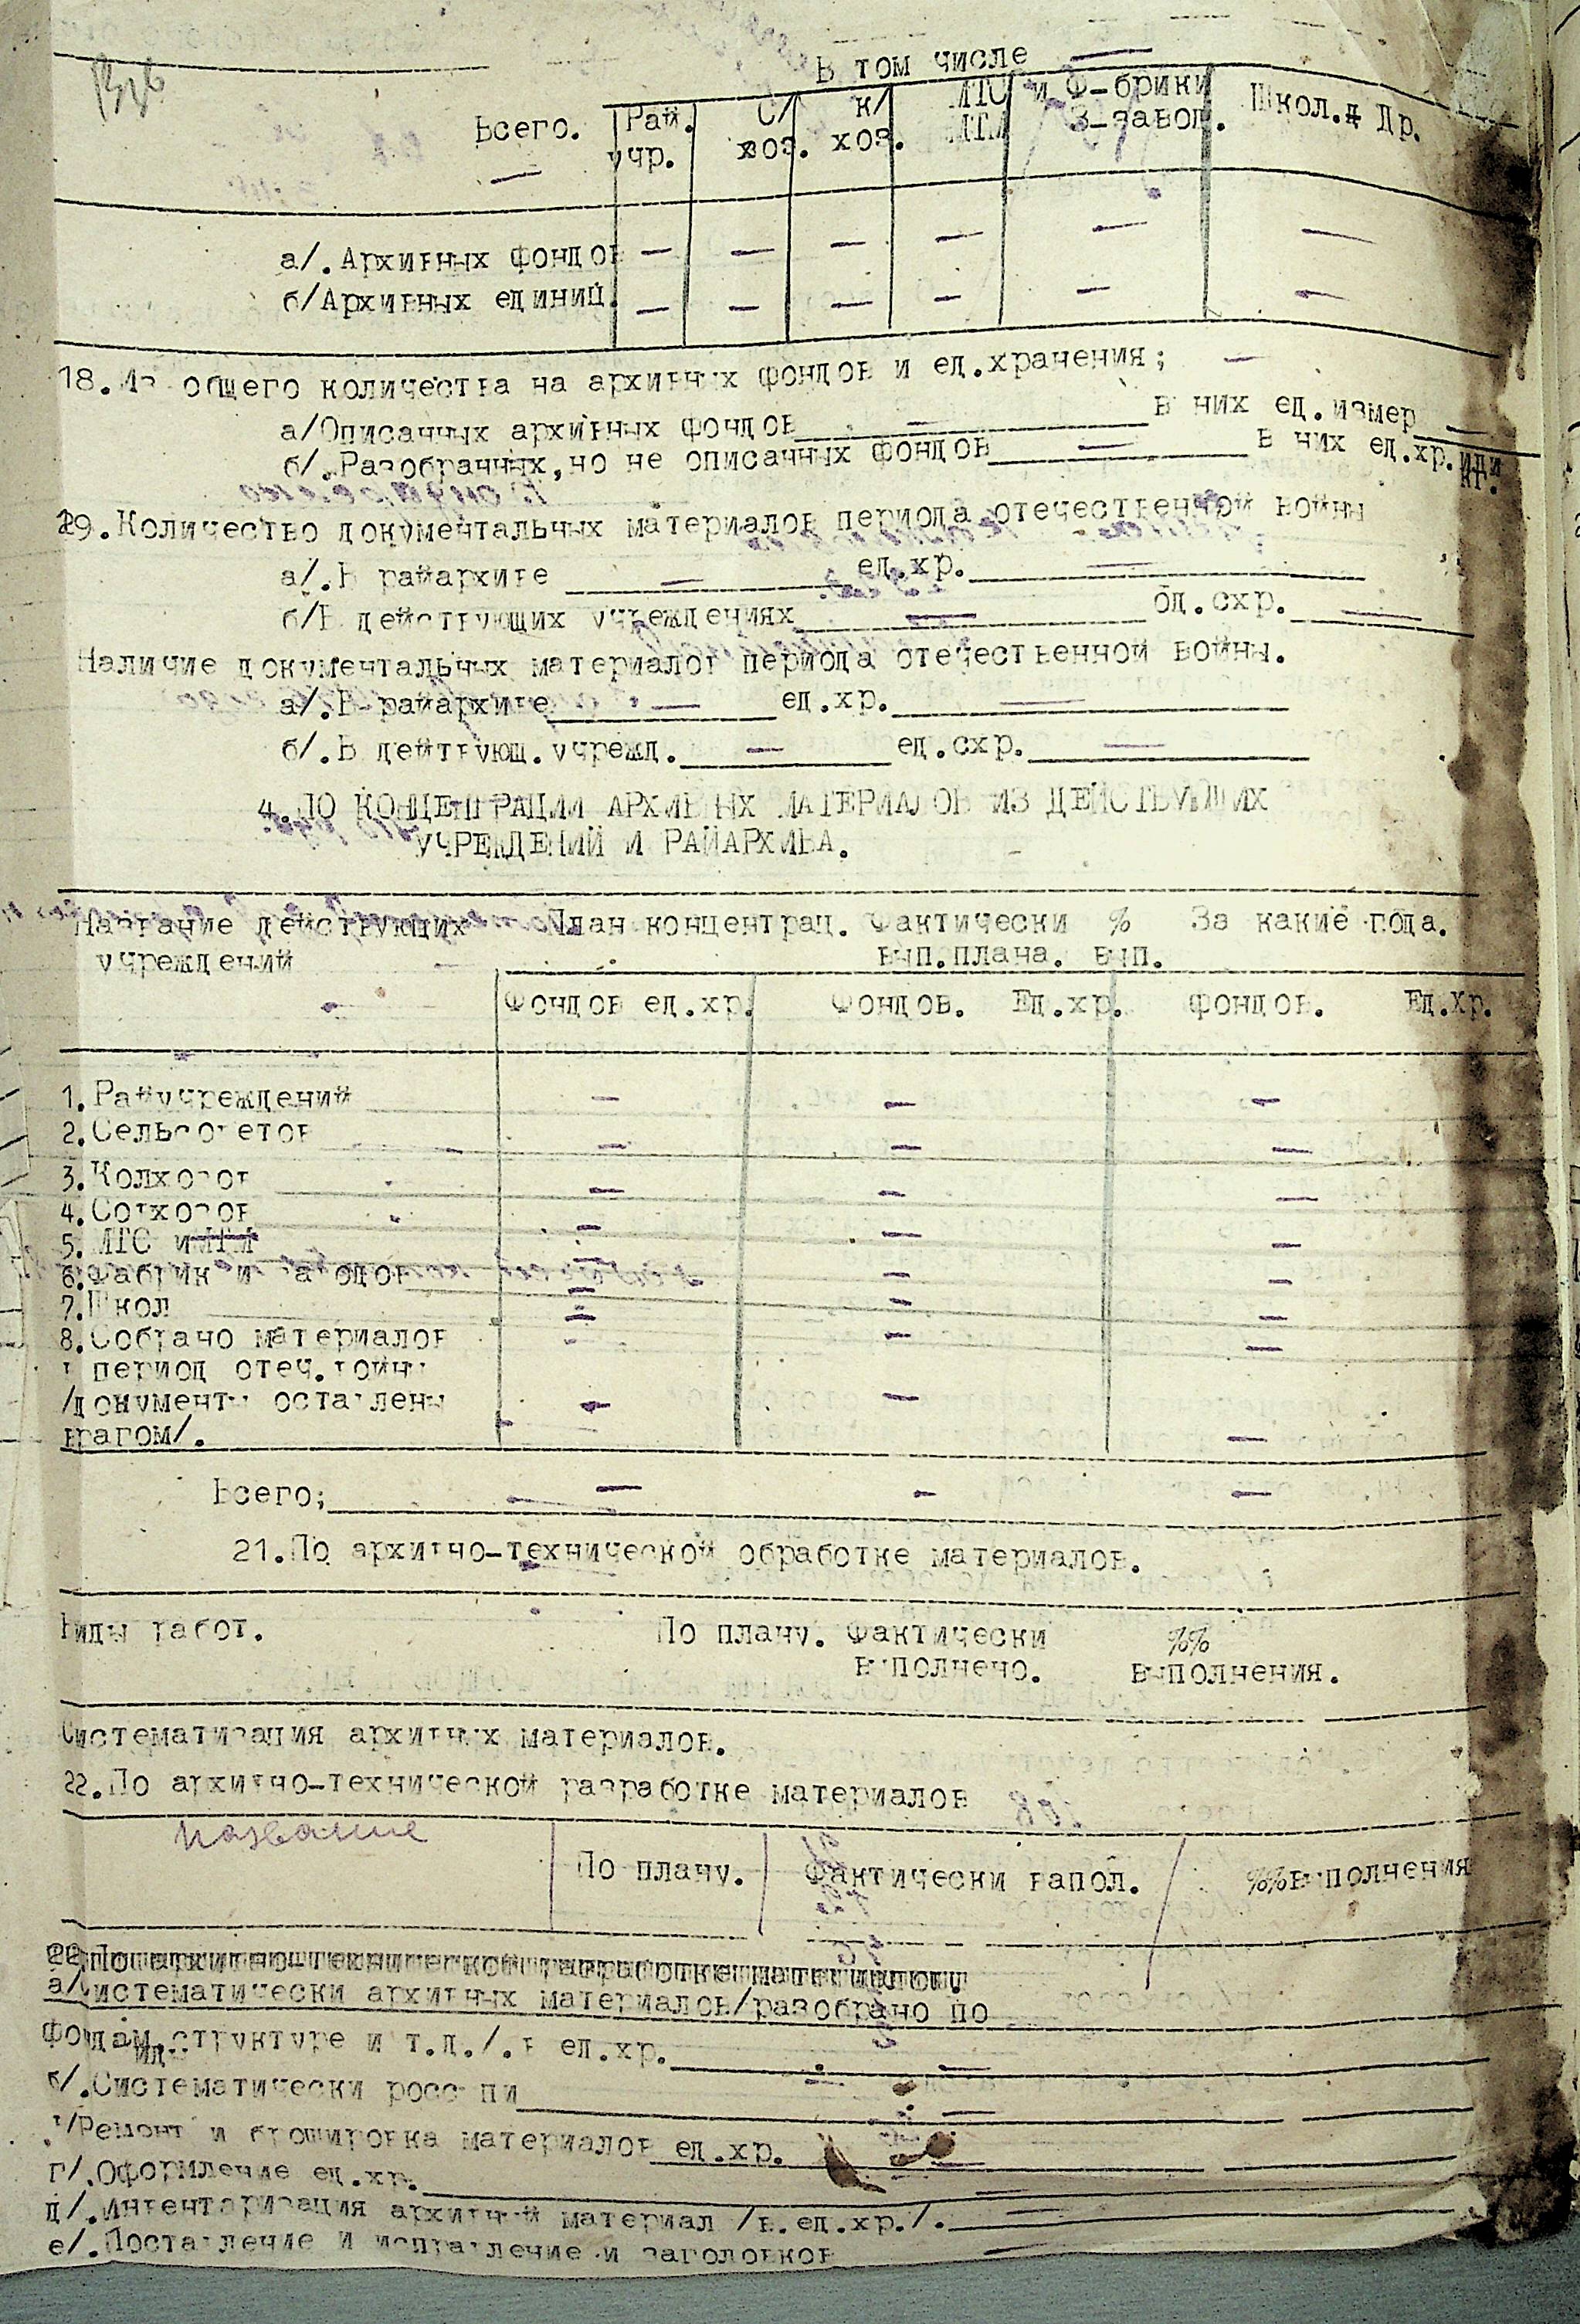 В том числе —
Всего. Рай. С/ к/ МТС и Ф-брики Школ. Др.
— учр. хоз. хоз. МТМ З-завод.
а/.Архивных фондов — — — — — —
б/Архивных единиц. — — — — — —
18.Из общего количества на архивных фондов и ед.хранения; —
а/Описанных архивных фондов — в них ед.измер —
б/.Разобранных,но не описанных фондов — в них ед.хр.или
кг.
29.Количество документальных материалов периода отечественной войны
а/.В райархиве — ед.хр. —
б/В действующих учреждениях — од.схр. —
Наличие документальных материалов периода отечественной войны.
а/.В райархиве — ед.хр. —
б/.В действующ.учрежд. — ед.схр. —
4.ПО КОНЦЕНТРАЦИИ АРХИВНЫХ МАТЕРИАЛОВ ИЗ ДЕЙСТВУЮЩИХ
УЧРЕЖДЕНИЙ И РАЙАРХИВА.
Название действующих План концентрац. Фактически % За какие года.
учреждений вып.плана. вып.
Фондов ед.хр. Фондов. Ед.хр. фондов. Ед.Хр.
1.Райучреждений — — —
2.Сельсоветов — — —
3.Колхозов — — —
4.Совхозов — — —
5.МТС и МТМ — — —
6.Фабрик и заводов — — —
7.Школ — — —
8.Собрано материалов — —
в период отеч.войны
/документы оставлены — —
врагом/. —
Всего; — — —
21.По архивно-технической обработке материалов.
Виды работ. По плану. Фактически %%
выполнено. выполнения.
Систематизация архивных материалов.
22.По архивно-технической разработке материалов
название
По плану. Фактически вапол. %%выполнения
22.По архивно-технической разработке материалов.
а/Систематически архивных материалов/разобрано по
Фондам,структуре и т.д./.в ед.хр. —
б/.Систематически россыпи —
в/Ремонт и брошировка материалов ед.хр.
г/.Оформление ед.хр. —
д/.Инвентаризация архивный материал /в.ед.хр./. —
е/.Поставление и исправление и заголовков —